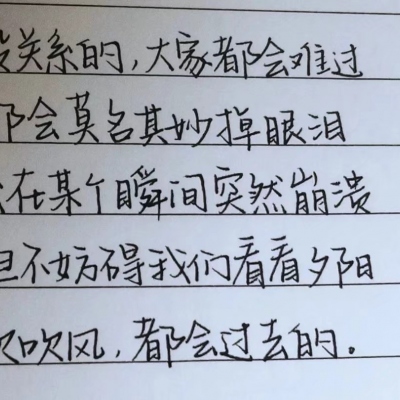 没关系的,大家都会难过
都会莫名其妙掉眼泪
在某个瞬间突然崩溃
但不妨碍我们看看夕阳
吹吹风,都会过去的.